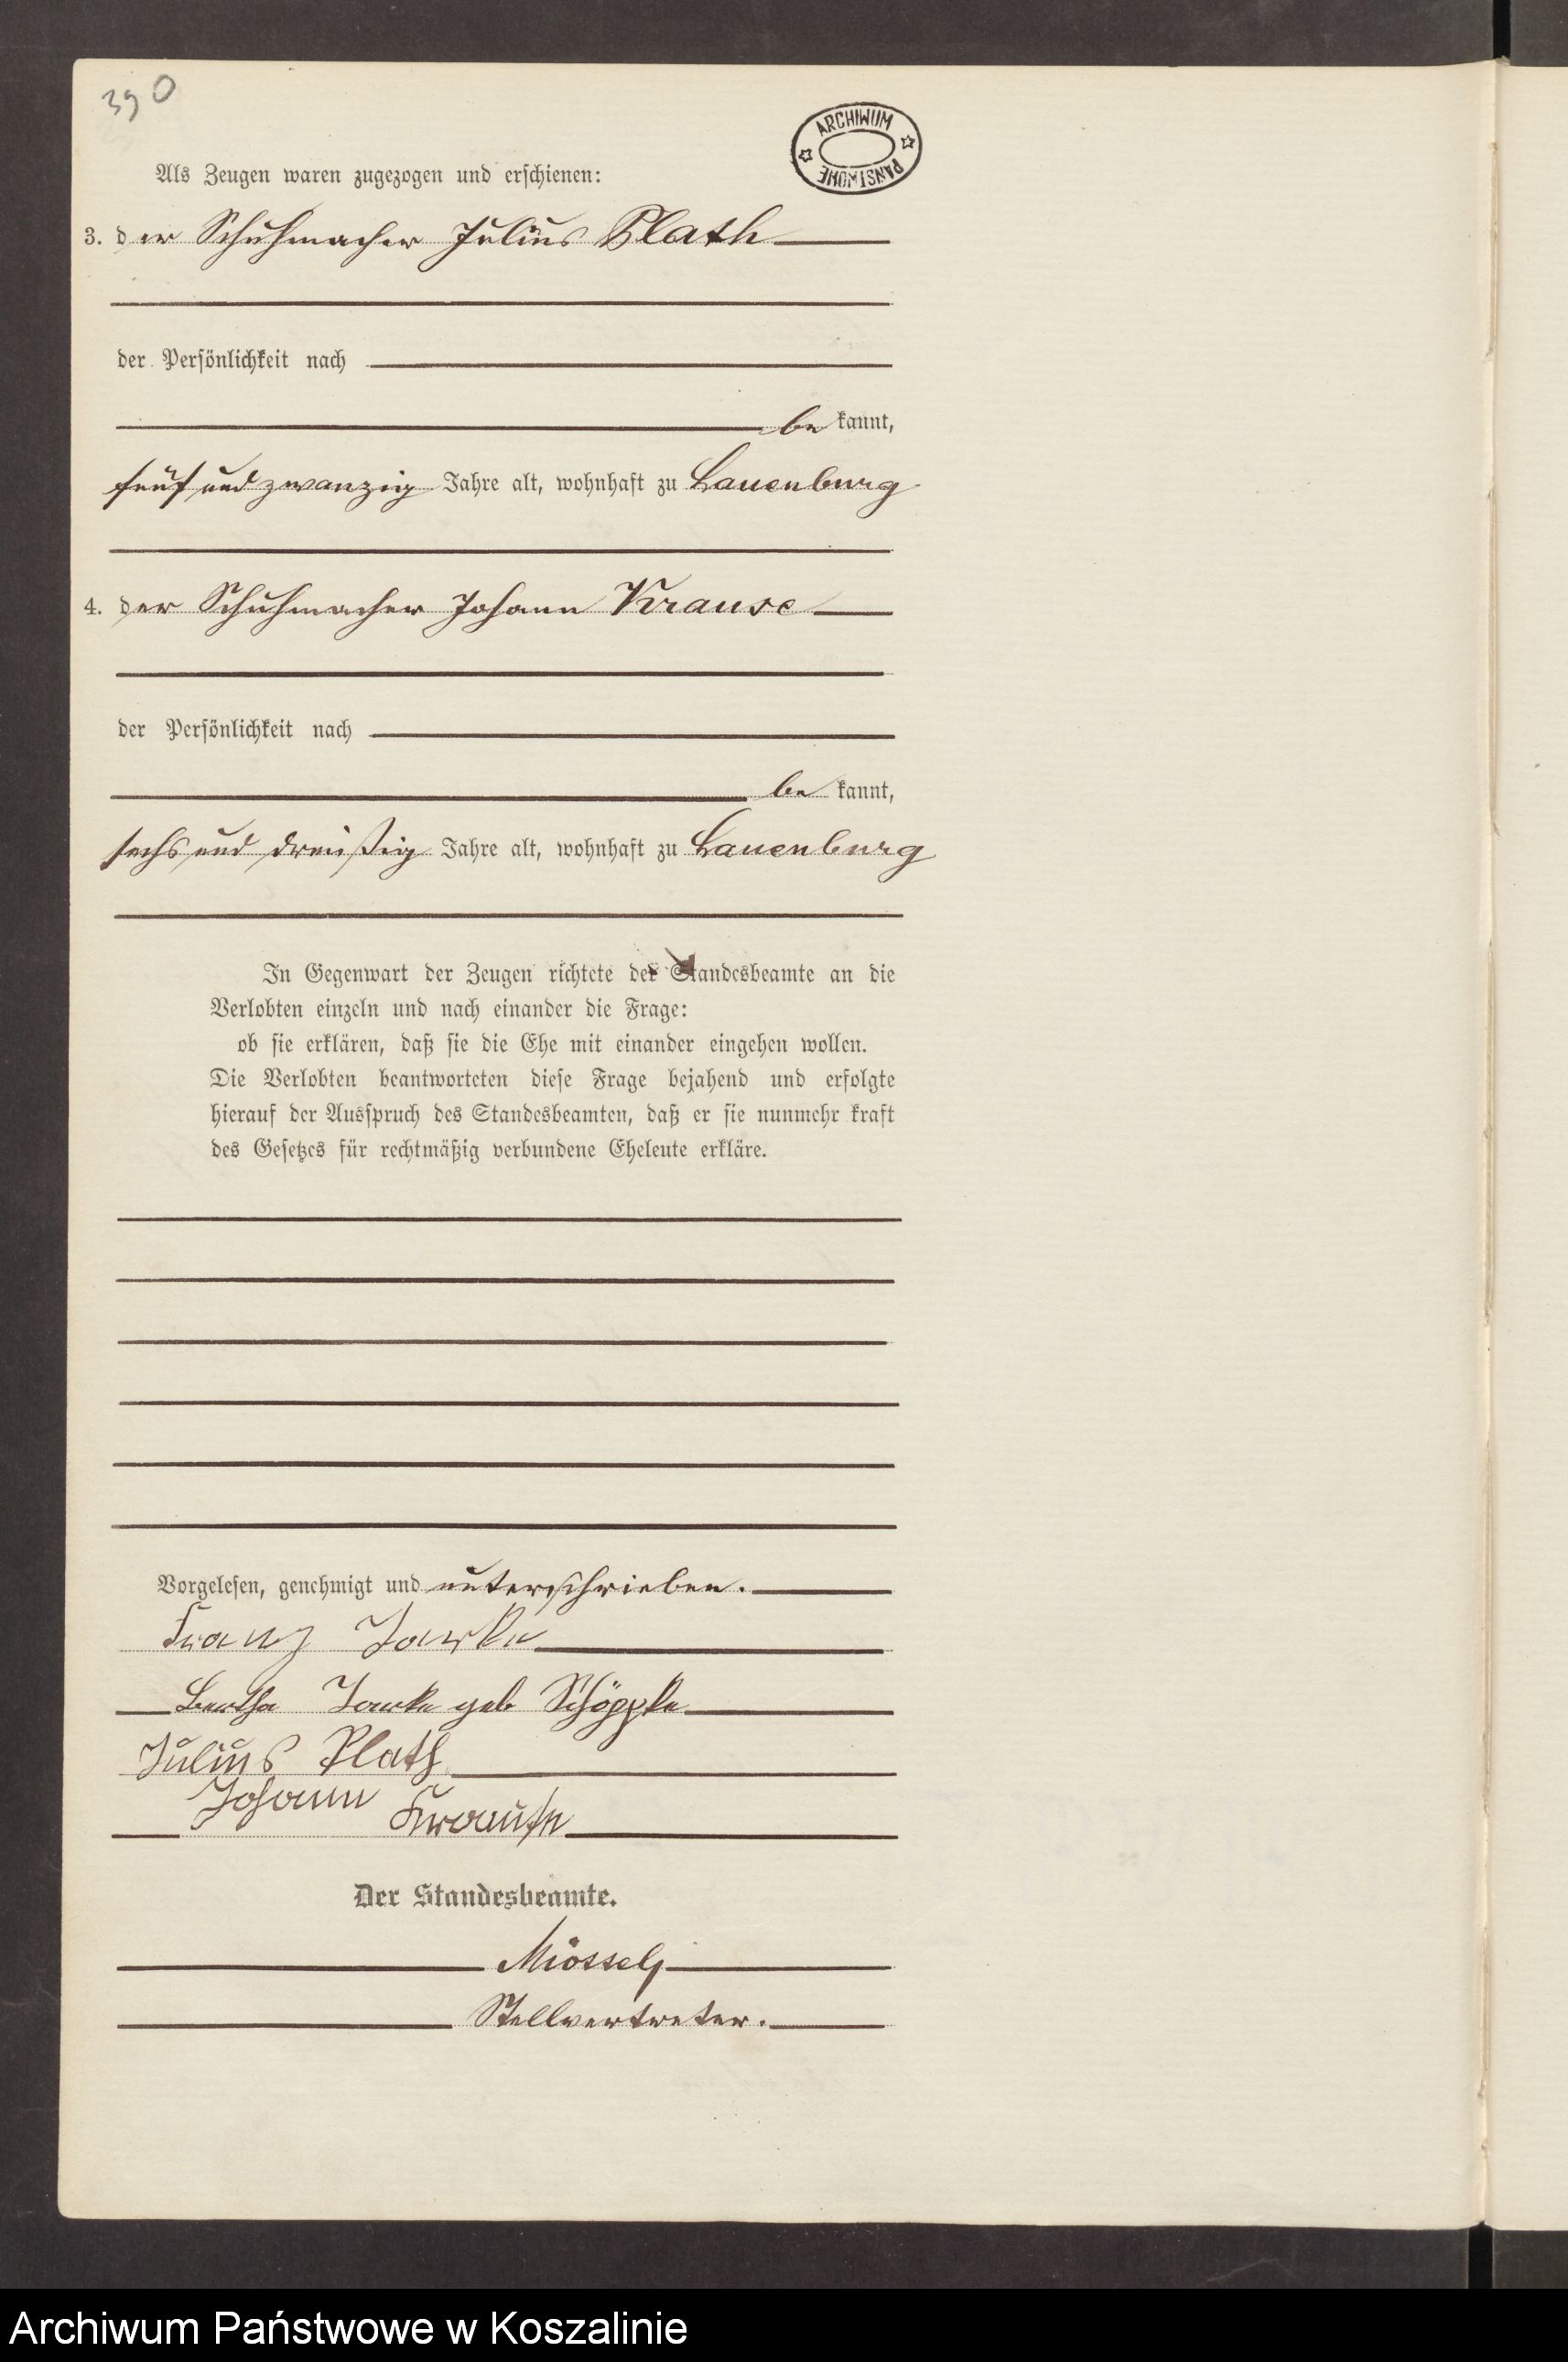 390
ARCHIWUM PAŃSTWOWE
Als Zeugen waren zugezogen und erschienen:
3. der Schuhmacher Julius Plath
der Persönlichkeit nach
bekannt,
fünf und zwanzig Jahre alt, wohnhaft zu Lauenburg
4. der Schuhmacher Johann Krause
der Persönlichkeit nach
bekannt,
sechs und dreißig Jahre alt, wohnhaft zu Lauenburg
In Gegenwart der Zeugen richtete der Standesbeamte an die
Verlobten einzeln und nach einander die Frage:
ob sie erklären, daß sie die Ehe mit einander eingehen wollen.
Die Verlobten beantworteten diese Frage bejahend und erfolgte
hierauf der Ausspruch des Standesbeamten, daß er sie nunmehr kraft
des Gesetzes für rechtmäßig verbundene Eheleute erkläre.
Vorgelesen, genehmigt und unterschrieben.
Franz
Bertha geb Schöppke
Julius Plath
Johann Krause
Der Standesbeamte.
Stellvertreter.
Archiwum Państwowe w Koszalinie